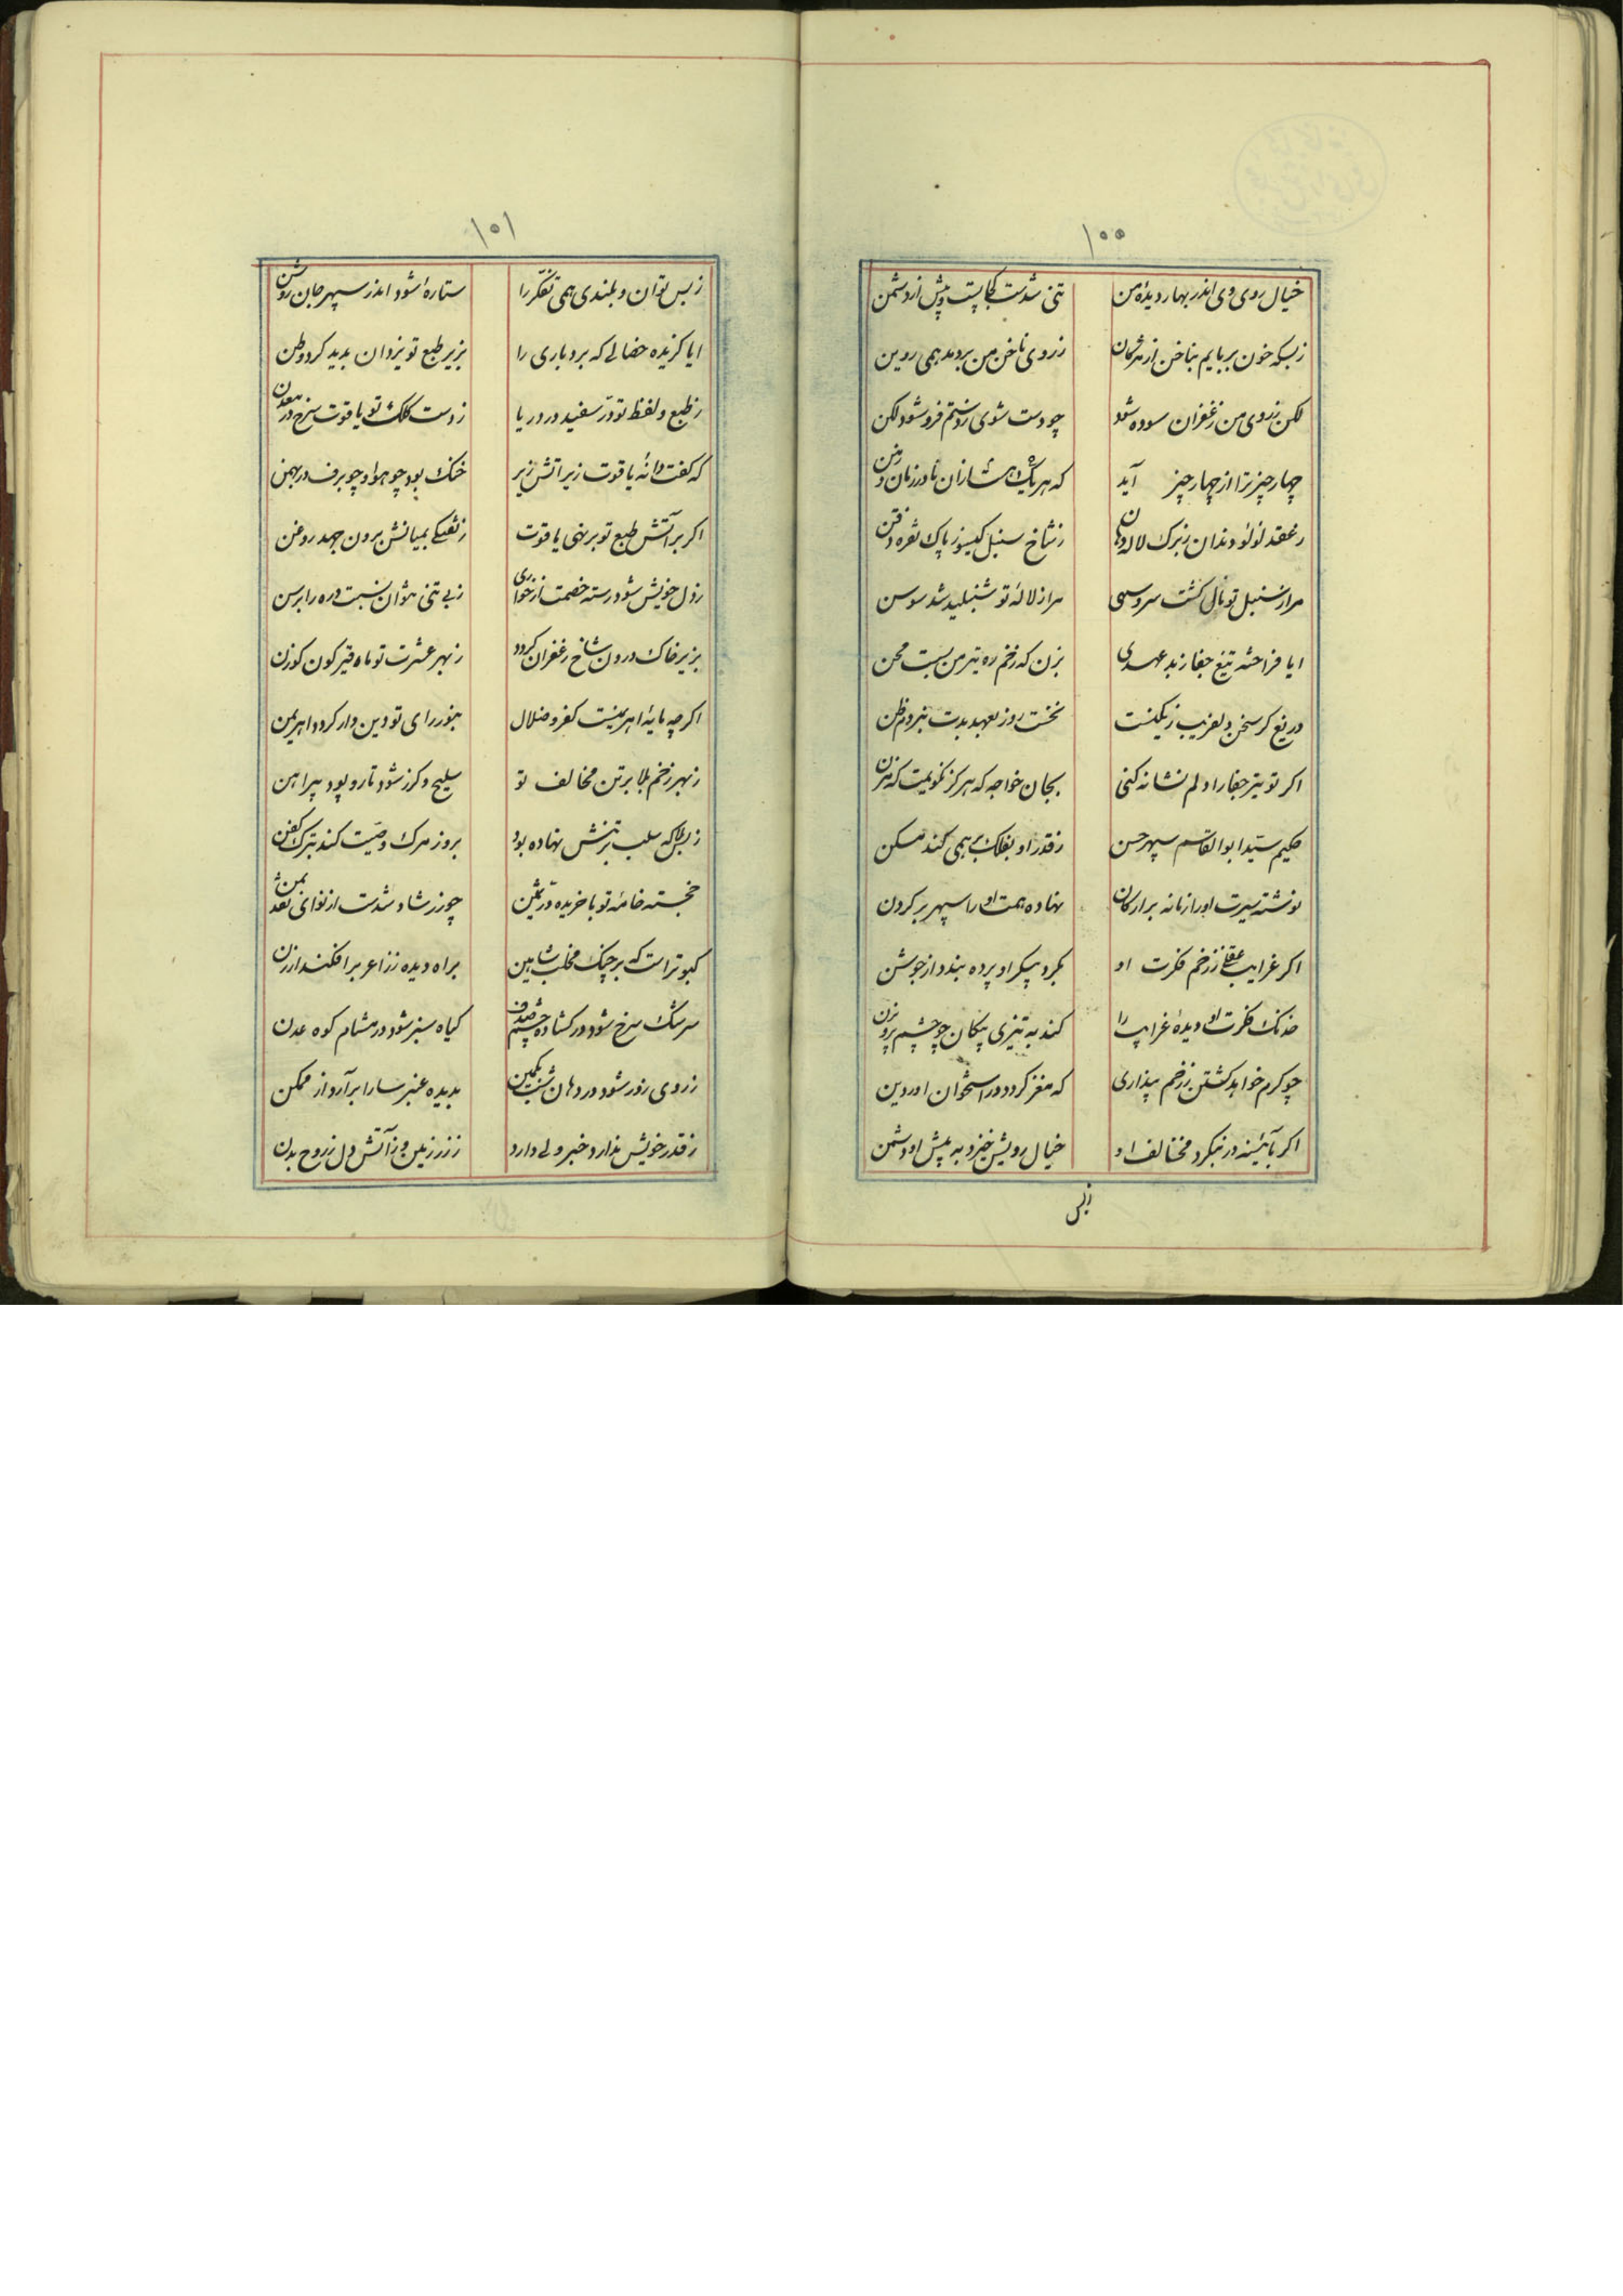 ۱۰۰
خیال روی وی اندر بهار دیدهٔ من تنی شدست کجا پست و پیش او دشمن
زبسکه خون بربایم بناخن از مژگان ز روی ناخن من بردمد همی روین
لکن ز روی من زعفران سوده شود چو دست شوی ز دستم فرو شود لکن
چهار چیز ترا از چهار چیز آید که هر یک از ان نادر زمان و زمن
ز عقد لؤلؤ دندان ز برک لاله دهان ز شاخ سنبل کیسو ز پاک نقره ذقن
مرا ز سنبل تو نال کشت سرو سهی مرا ز لالهٔ تو شنبلید شد سوسن
ایا فراخته تیغ جفا ز بد عهدی بزن که زخم ره تیر من ببست محن
دریغ کر سخن دلفریب نخست روز بعهد بدت نبردم ظن
اکر تو تیر جفا را دلم نشانه کنی بجان خواجه که هرکز نکویمت که مزن
حکیم سید ابوالقاسم سپهر حسن ز قدر او بفلک بر همی کند مسکن
نوشته سیرت او را زمانه بر ارکان نهاده همت او را سپهر بر کردن
اکر غرایب عقلی ز زخم فکرت او بکرد پیکر او پرده بندد از جوشن
خدنک فکرت او دیدهٔ غرایب را کند به تیزی پیکان چو چشم پرویزن
چو کرم خواهد کشتن ز زخم پنداری که مغز کردد در استخوان او روین
اکر بآئینه در بنکرد مخالف او خیال رویش خیزد به پیش او دشمن
زبس
۱۰۱
زبس توان و بلندی همی تفکر را ستارهٔ شود اندر سپهر جان روشن
ایا کزیده خصالی که بردباری را بزیر طبع تو یزدان پدید کرد وطن
ز طبع و لفظ تو در سفید در دریا ز دست کلک تو یاقوت سرخ در معدن
که کفت دانهٔ یاقوت زیر آتش تیز خنک بود چو هوا و چو برف در بهمن
اکر بر آتش طبع تو بر نهی یاقوت ز تفتکی بمیانش برون جهد روغن
ز دل خویش شود رسته خصمت از خواری ز بی تنی بتوان بست دره را برسن
بزیر خاک درون شاخ زعفران کردد ز بهر عشرت تو ماه قیرکون کوزن
اکر چه مایهٔ اهریمنیست کفر و ضلال بنور رای تو دین دار کردد اهریمن
ز بهر زخم بلا بر تن مخالف تو سلیح و کرز شود تار و پود پیراهن
ز بس بلا که سلب بر تنش نهاده بود بروز مرک وصیت کند بترک کفن
خجسته خامهٔ تو با خریده در ثمین چو زر شاد شدست از نوای نقد ثمن
کبوتر است که بر چنک مخلب شاهین براه دیده ز زاغر برافکند ارزن
سرشک سرخ شود در کشاده چشم صدف کیاه سبز شود در مشام کوه عدن
ز روی روز شود در دهان شب بکمین بدیده عنبر سارا برآرد از مکمن
ز قدر خویش ندارد خبر ولی دارد ز زر زبان و ز آتش دل ز روح بدن